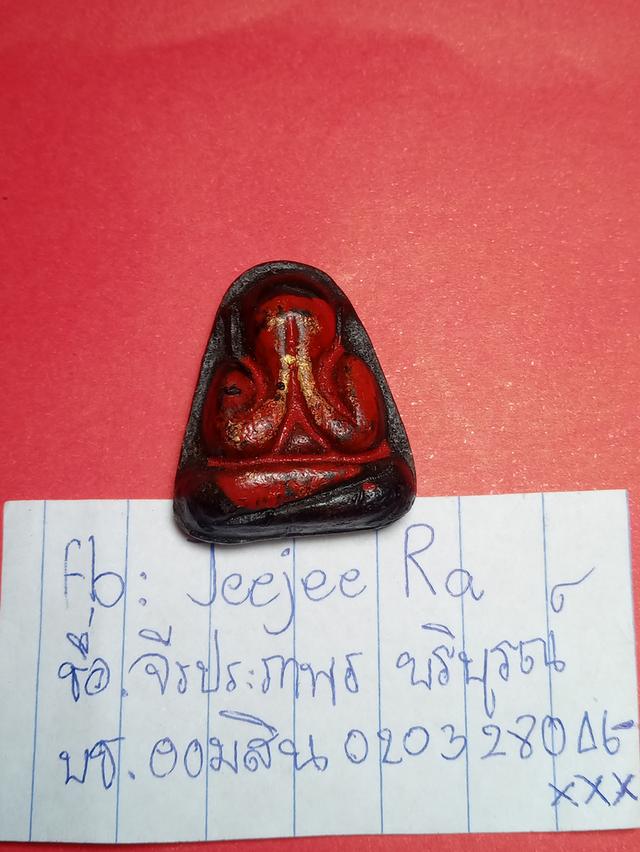 fb: Jeejee Ra
ชื่อ. จีรประภาพร บริบูรณ์
บช. ออมสิน 0203280
xxx